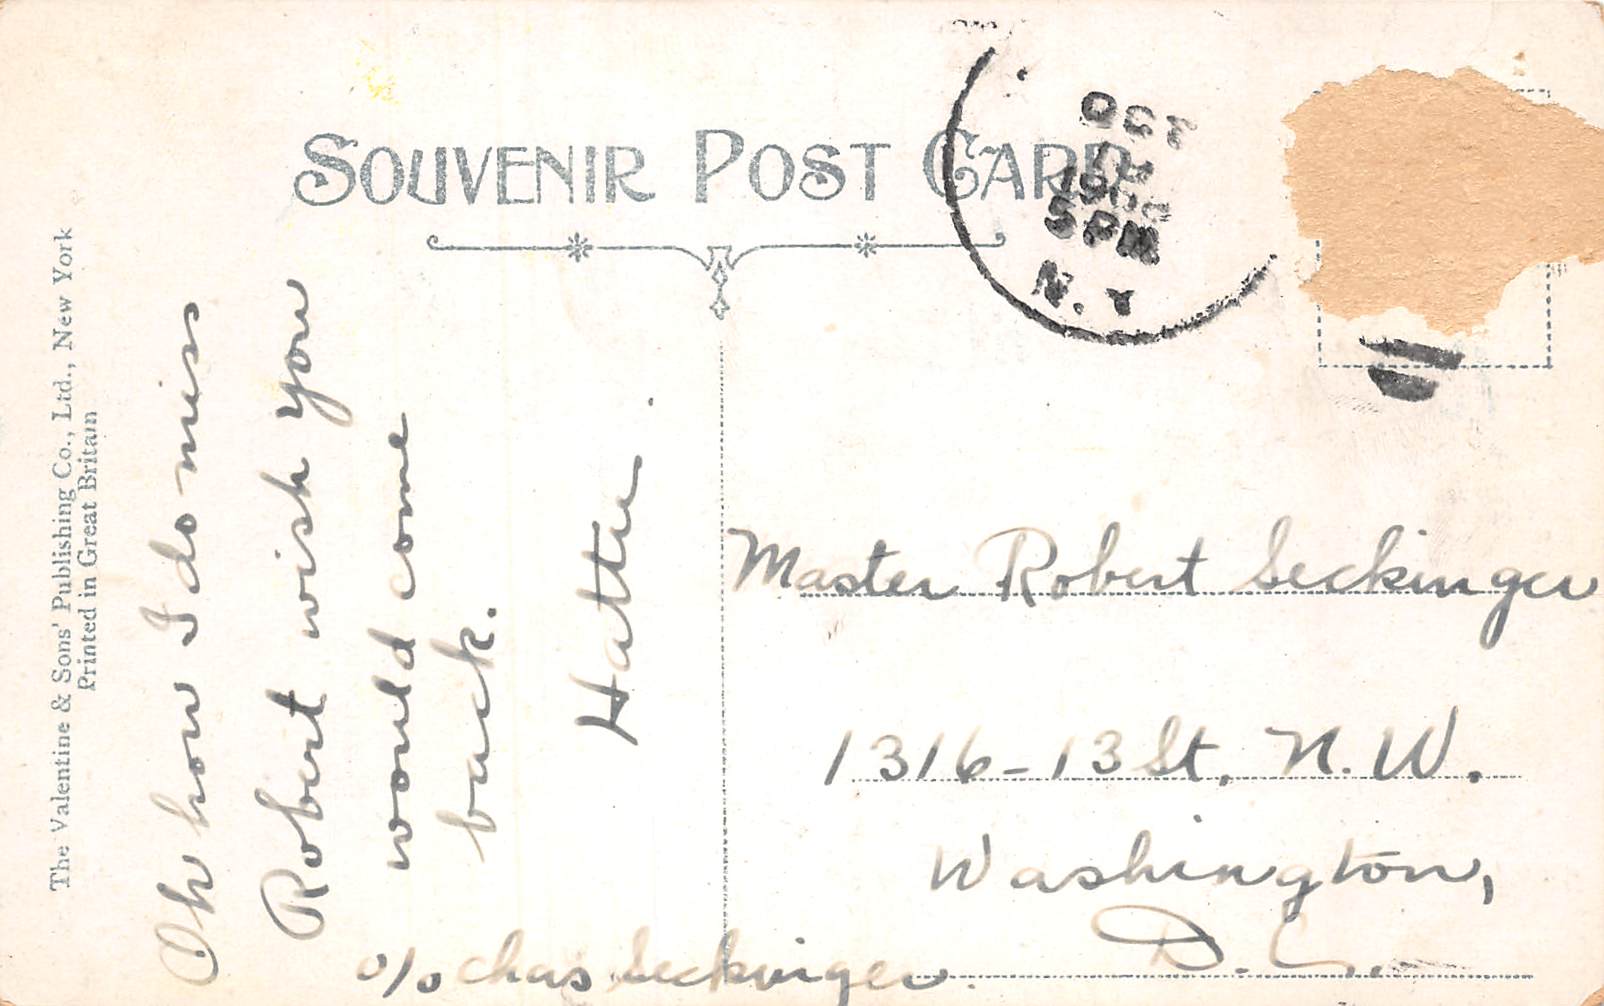 SOUVENIR POST CARD
OCT
1908
5 PM
N.Y
The Valentine & Sons' Publishing Co., Ltd., New York
Printed in Great Britain
Oh how I do miss
Robert wish you
would come
back.
Hattie.
Master Robert Seckinger
1316-13 St. N.W.
Washington,
D.C.
c/o Chas Seckinger.